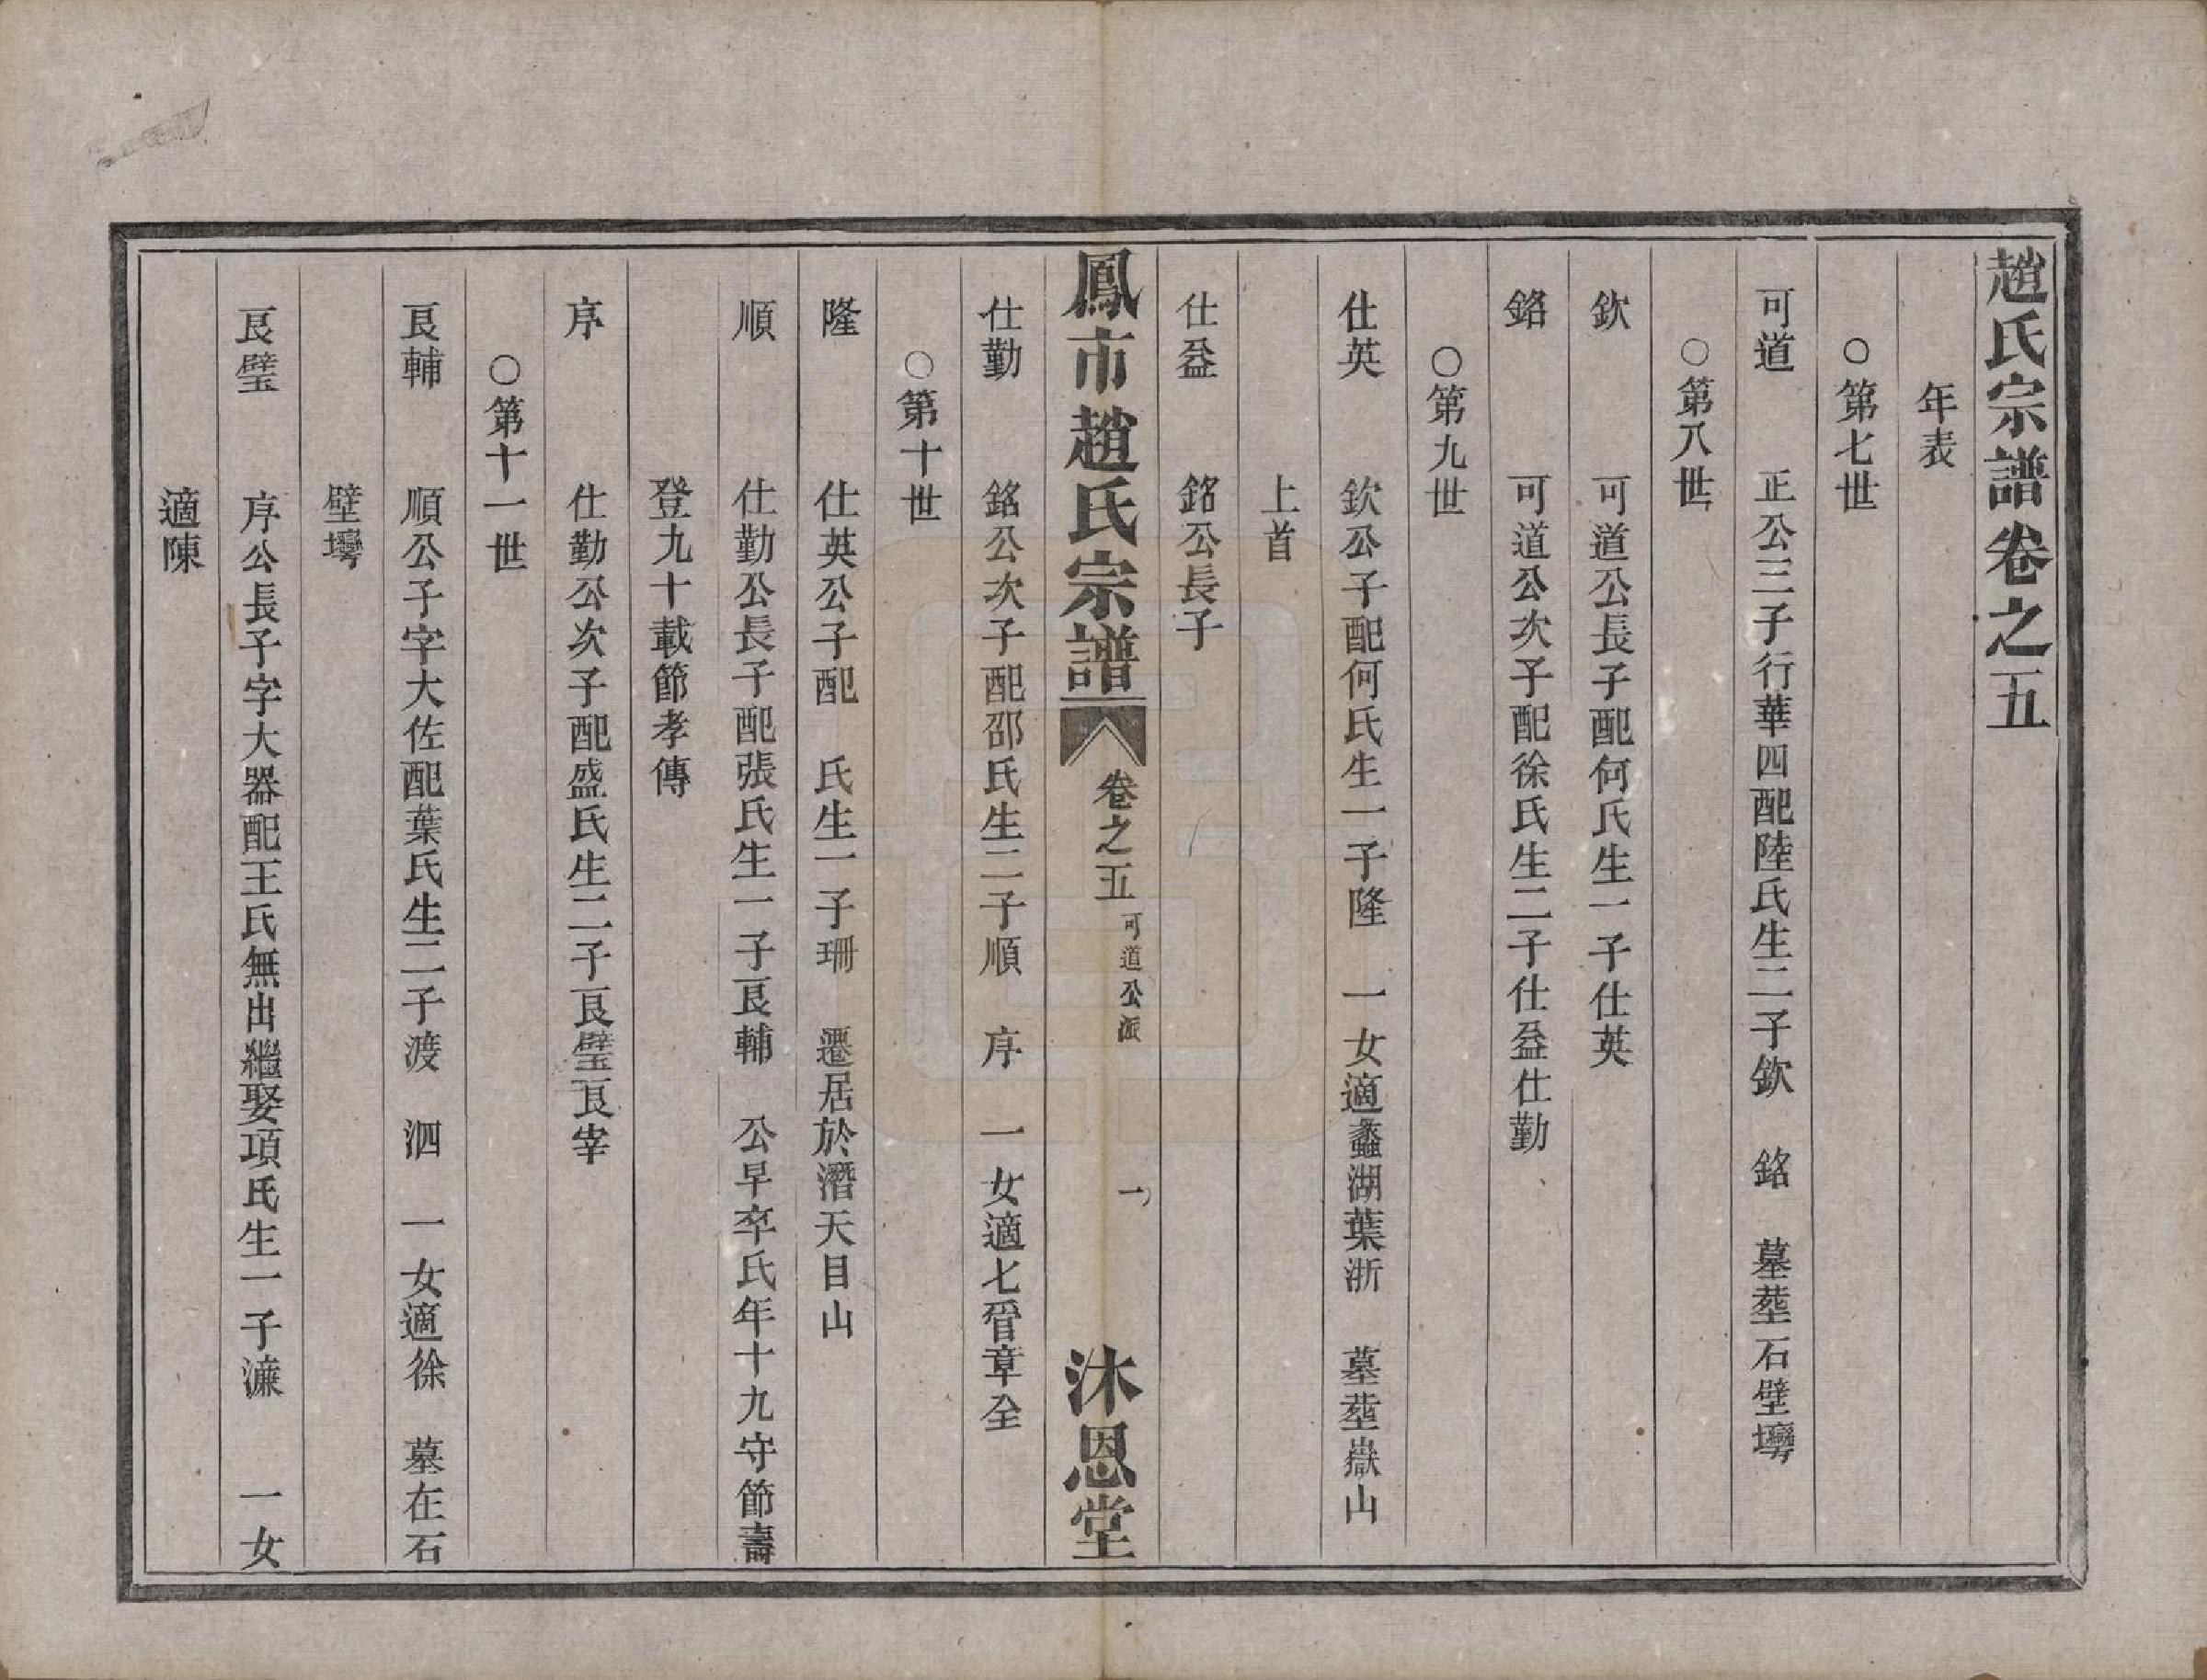 趙氏宗譜卷之五
年表
○第七世
可道 正公三子行華四配陸氏生二子欽 銘 墓塟石壁壪
○第八世
欽 可道公長子配何氏生一子仕英
銘 可道公次子配徐氏生二子仕益仕勤
○第九世
仕英 欽公子配何氏生一子隆 一女適蠡湖葉浙 墓塟嶽山
上首
仕益 銘公長子
鳳市趙氏宗譜 卷之五 可道公派 一 沐恩堂
仕勤 銘公次子配邵氏生二子順 序 一女適七晉章全
○第十世
隆 仕英公子配 氏生一子珊 遷居於潛天目山
順 仕勤公長子配張氏生一子良輔 公早卒氏年十九守節壽
登九十載節孝傳
序 仕勤公次子配盛氏生二子良璧良宰
○第十一世
良輔 順公子字大佐配葉氏生二子渡 泗 一女適徐 墓在石
壁壪
良璧 序公長子字大器配王氏無出繼娶項氏生一子濂 一女
適陳